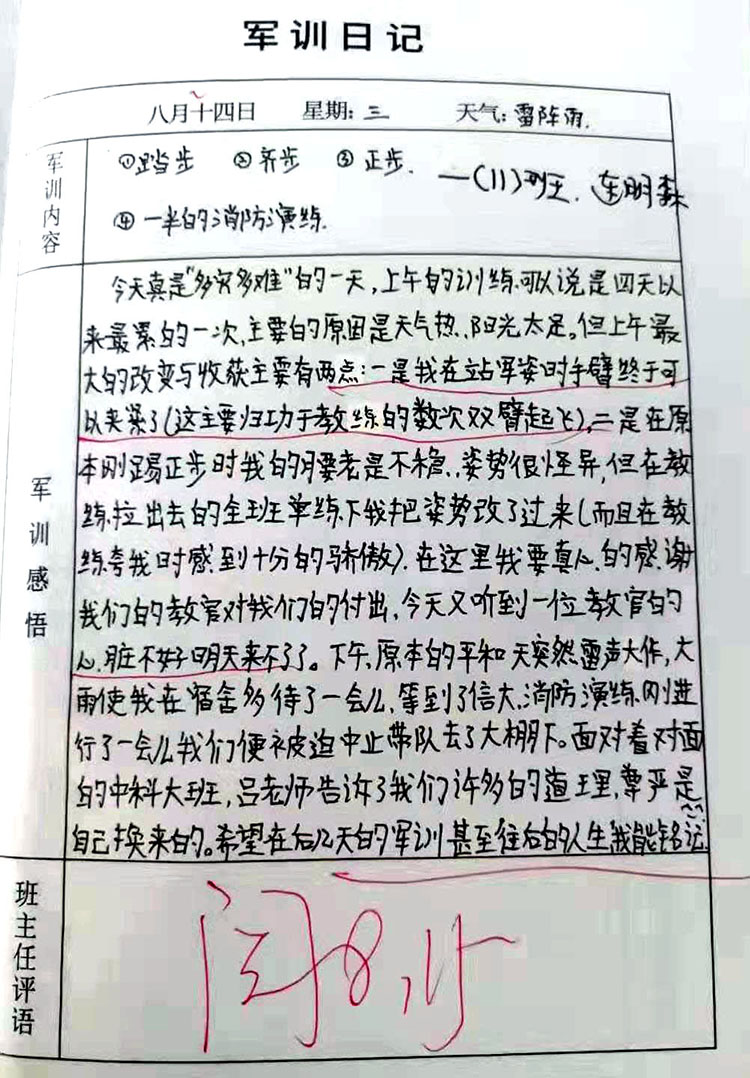 军训日记
八月十四日 星期:三 天气:雷阵雨.
军训内容
①踏步 ②齐步 ③正步. 一(11)班. 连明森
④一半的消防演练.
军训感悟
今天真是“多灾多难”的一天,上午的训练可以说是四天以
来最累的一次,主要的原因是天气热,阳光太足。但上午最
大的改变与收获主要有两点:一是我在站军姿时手臂终于可
以夹紧了(这主要归功于教练的数次双臂起飞),二是在原
本刚踢正步时我的腰老是不稳,姿势很怪异,但在教
练拉出去的全班单练下我把姿势改了过来(而且在教
练夸我时感到十分的骄傲).在这里我要真心的感谢
我们的教官对我们的付出,今天又听到一位教官的
心脏不好明天来不了了。下午,原本的平和天突然雷声大作,大
雨使我在宿舍多待了一会儿,等到了信大,消防演练刚进
行了一会儿我们便被迫中止带队去了大棚下。面对着对面
的中科大班,吕老师告诉了我们许多的道理,尊严是
自己换来的。希望在后几天的军训甚至往后的人生我能铭记.
班主任评语
闫8,15